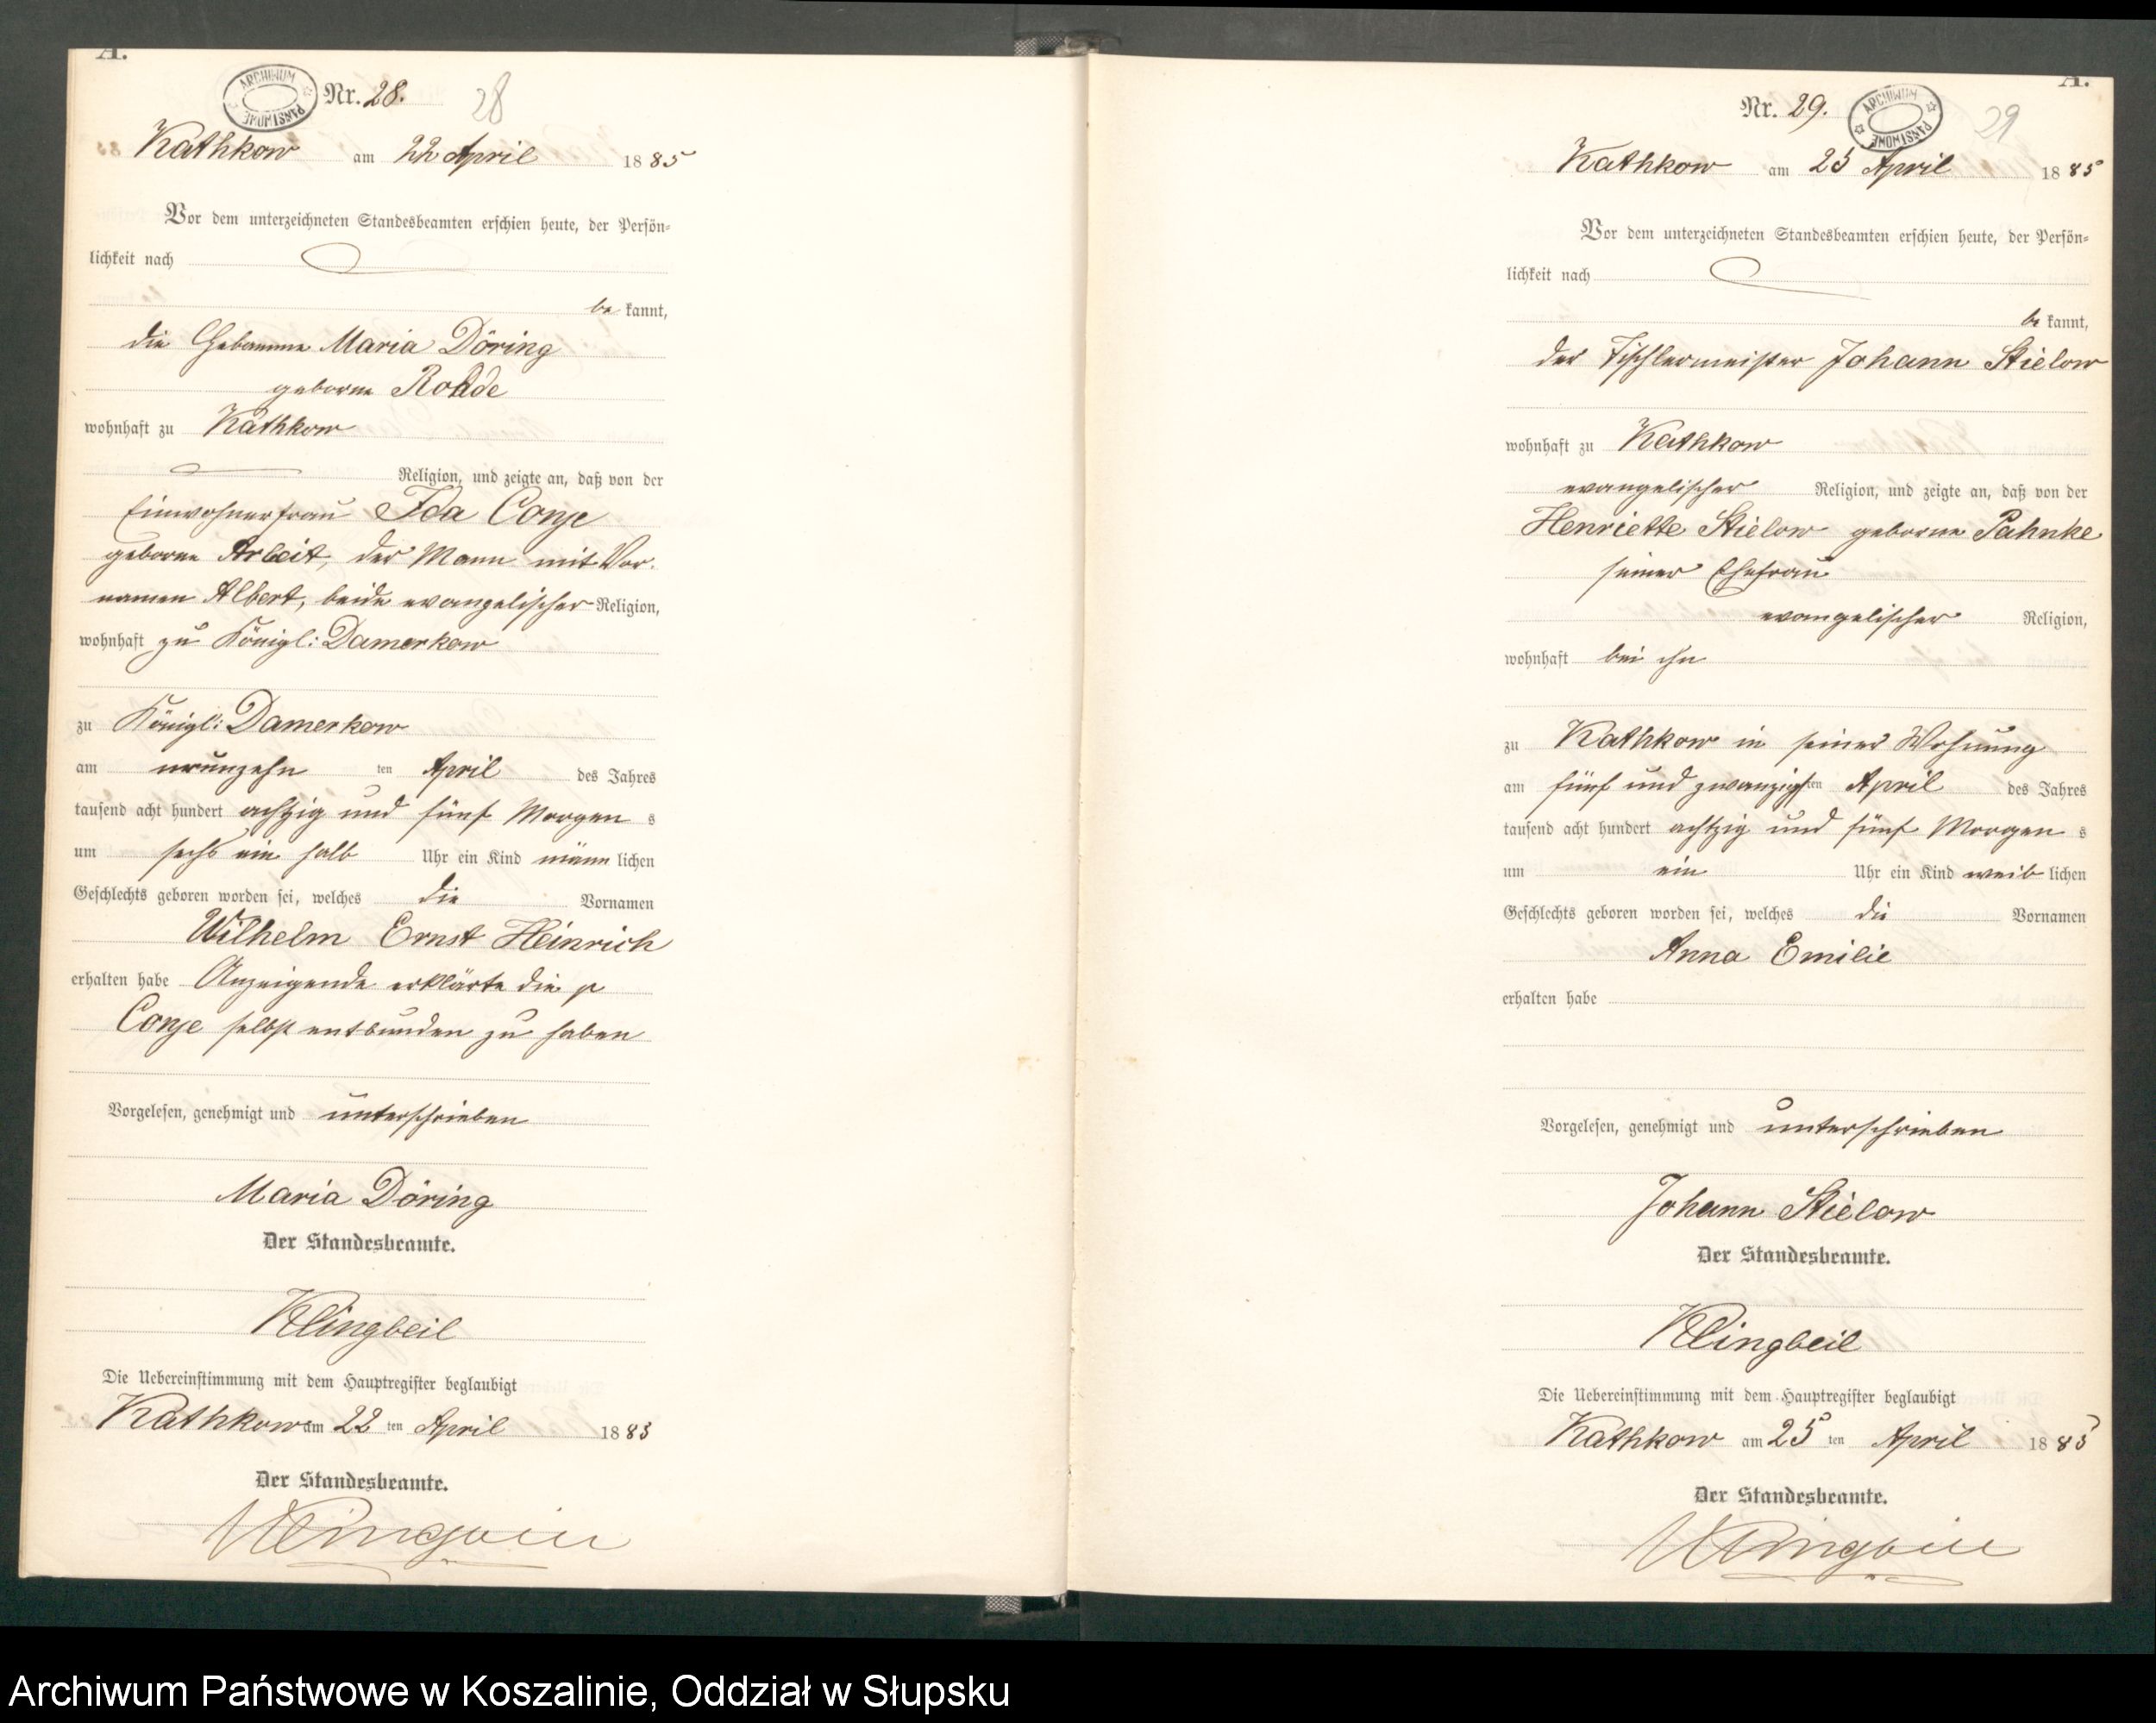 A.
ARCHIWUM PAŃSTWOWE
Nr. 28.
28
Kathkow am 22 April 1885
Vor dem unterzeichneten Standesbeamten erschien heute, der Persön-
lichkeit nach
be kannt,
die Hebamme Maria Döring
geborne Rohde
wohnhaft zu Kathkow
Religion, und zeigte an, daß von der
Einwohnerfrau Ida Conje
geborne Arbeit, der Mann mit Vor-
namen Albert, beide evangelischer Religion,
wohnhaft zu Königl: Damerkow
zu Königl: Damerkow
am neunzehn ten April des Jahres
tausend acht hundert achtzig und fünf Morgen s
um sechs ein halb Uhr ein Kind männ lichen
Geschlechts geboren worden sei, welches die Vornamen
Wilhelm Ernst Heinrich
erhalten habe Anzeigende erklärte die p
Conje selbst entbunden zu haben
Vorgelesen, genehmigt und unterschrieben
Maria Döring
Der Standesbeamte.
Klingbeil
Die Uebereinstimmung mit dem Hauptregister beglaubigt
Kathkow am 22 ten April 1885
Der Standesbeamte.
Klingbeil
A.
Nr. 29.
ARCHIWUM PAŃSTWOWE
29
Kathkow am 25 April 1885
Vor dem unterzeichneten Standesbeamten erschien heute, der Persön-
lichkeit nach
be kannt,
der Tischlermeister Johann Stielow
wohnhaft zu Kathkow
evangelischer Religion, und zeigte an, daß von der
Henriette Stielow geborne Pahnke
seiner Ehefrau
evangelischer Religion,
wohnhaft bei ihn
zu Kathkow in seiner Wohnung
am fünf und zwanzigsten April des Jahres
tausend acht hundert achtzig und fünf Morgen s
um ein Uhr ein Kind weib lichen
Geschlechts geboren worden sei, welches die Vornamen
Anna Emilie
erhalten habe
Vorgelesen, genehmigt und unterschrieben
Johann Stielow
Der Standesbeamte.
Klingbeil
Die Uebereinstimmung mit dem Hauptregister beglaubigt
Kathkow am 25 ten April 1885
Der Standesbeamte.
Klingbeil
Archiwum Państwowe w Koszalinie, Oddział w Słupsku